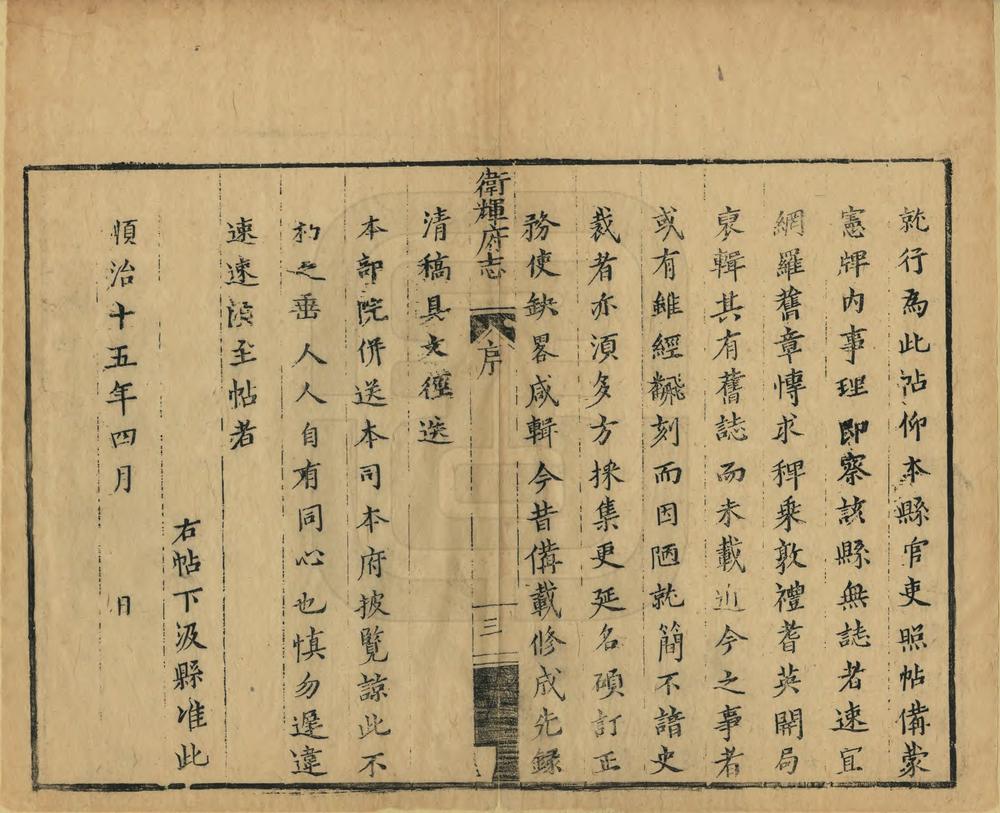 就行為此帖仰本縣官吏照帖備蒙
憲牌内事理即察該縣無誌者速宜
網羅舊章博求稗乘敦禮耆英開局
裒輯其有舊誌而未載近今之事者
或有雖經飜刻而因陋就簡不諳史
裁者亦須多方採集更延名碩訂正
務使缺畧咸輯今昔備載修成先録
衛輝府志
序
三
清稿具文徑送
本部院併送本司本府披覽諒此不
朽之垂人人自有同心也慎勿遲違
速速須至帖者
右帖下汲縣准此
順治十五年四月 日